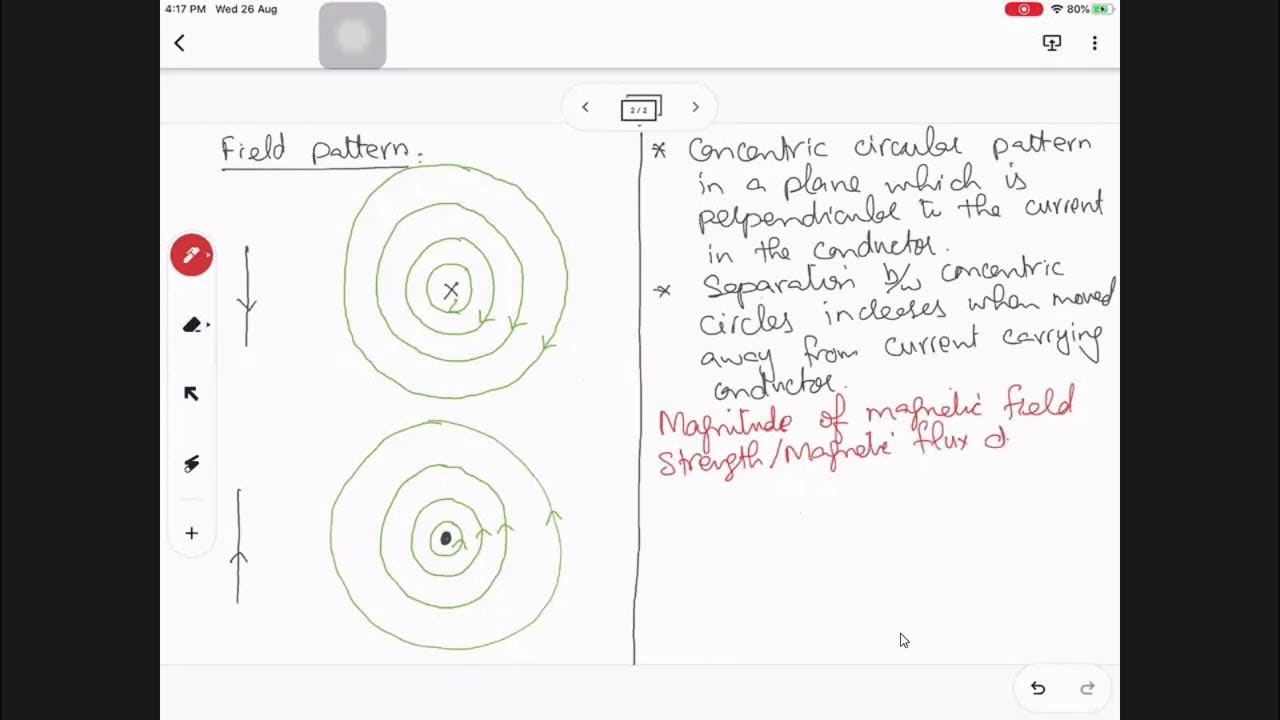 4:17 PM Wed 26 Aug
80%
2/2
Field pattern:
* Concentric circular pattern
in a plane which is
perpendicular to the current
in the conductor.
* Separation b/w concentric
circles increases when moved
away from current carrying
conductor.
Magnitude of magnetic field
Strength/Magnetic flux d